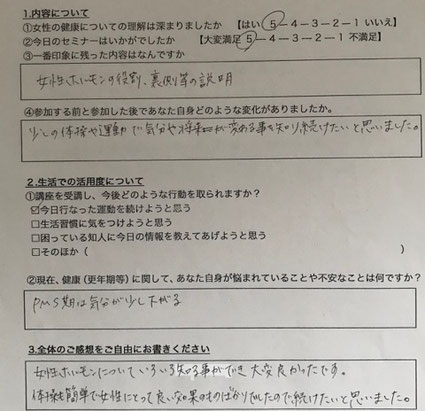 1.内容について
①女性の健康についての理解は深まりましたか 【はい 5－4－3－2－1 いいえ】
②今日のセミナーはいかがでしたか 【大変満足 5－4－3－2－1 不満足】
③一番印象に残った内容はなんですか
女性ホルモンの役割、裏側等の説明
④参加する前と参加した後であなた自身どのような変化がありましたか。
少しの体操や運動で気分や将来が変わる事を知り続けたいと思いました。
2.生活での活用度について
①講座を受講し、今後どのような行動を取られますか？
☑今日行なった運動を続けようと思う
□生活習慣に気をつけようと思う
□困っている知人に今日の情報を教えてあげようと思う
□そのほか（ ）
②現在、健康（更年期等）に関して、あなた自身が悩まれていることや不安なことは何ですか？
PMS期は気分が少し下がる
3.全体のご感想をご自由にお書きください
女性ホルモンについていろいろ知る事ができ大変良かったです。
体操も簡単で女性にとって良い効果のものばかりでしたので続けたいと思いました。